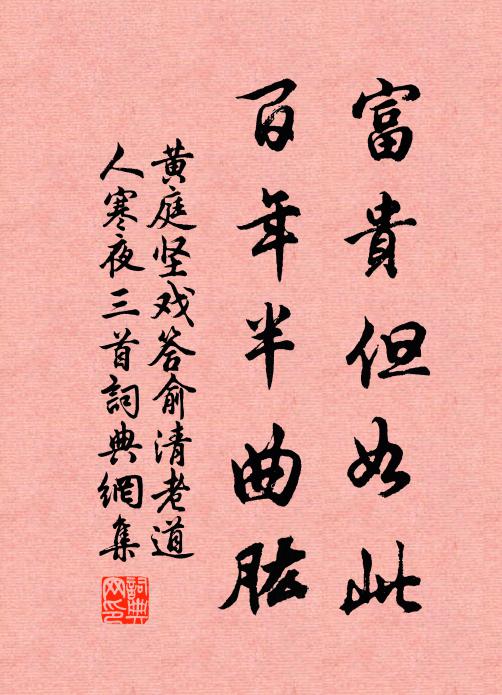 富貴但如此
百年半曲肱
黄庭坚戏答俞清老道
人寒夜三首詞典網集
詞典
网印